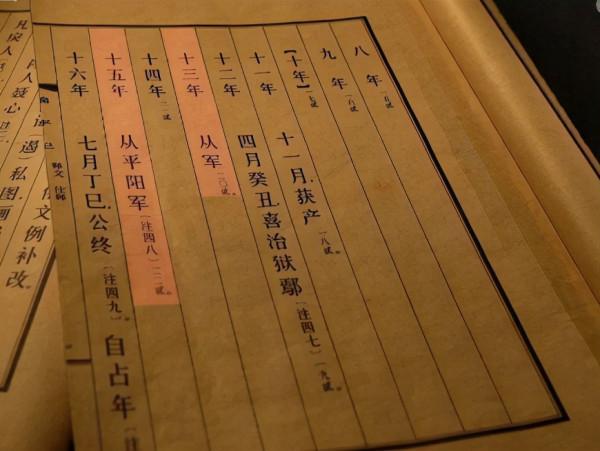 八年一五贰。
九年一六贰。
【十年】一七贰。
十一年 十一月,获产一八贰。
十二年 四月癸丑,喜治狱鄢〔注四七〕一九贰。
十三年 从军二〇贰。
十四年二一贰。
十五年 从平阳军〔注四八〕二二贰。
十六年 七月丁巳,公终〔注四九〕自占年〔注
文例补改。
私图